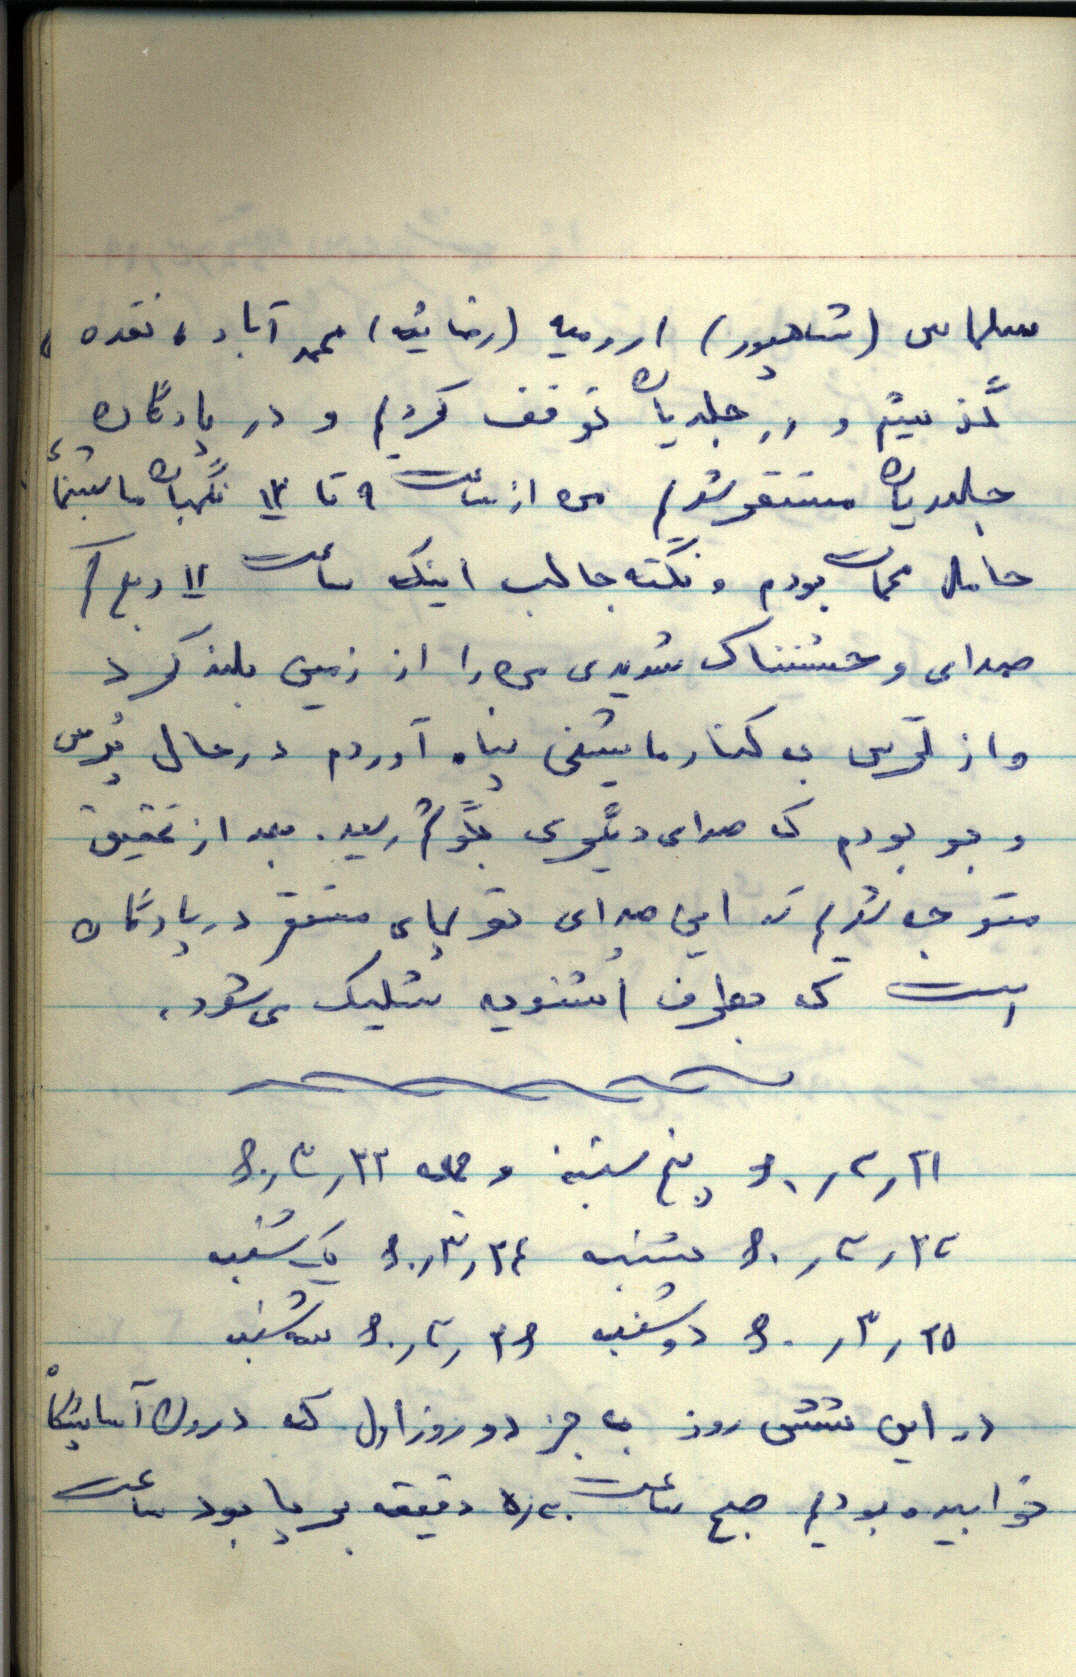 سلماس (شاهپور) ارومیه (رضائیه) محمد آباد، نقده،
گذشتیم و در جلدیان توقف کردیم و در پادگان
جلدیان مستقر شدیم من از ساعت ۹ تا ۱۲ نگهبان ماشینهای
حامل مهمات بودم و نکته جالب اینکه ساعت ۱۱ و ربع کم
صدای وحشتناک شدیدی من را از زمین بلند کرد
و از ترس به کنار ماشینی پناه آوردم در حال پرس
و جو بودم که صدای دیگری بگوشم رسید. بعد از تحقیق
متوجه شدیم که این صدای توپهای مستقر در پادگان
است که بطرف اشنویه شلیک می‌شود.
۲۱ر۳ر۶۰ پنج شنبه و جمعه ۲۲ر۳ر۶۰
۲۳ر۳ر۶۰ شنبه ۲۴ر۳ر۶۰ یک شنبه
۲۵ر۳ر۶۰ دوشنبه ۲۶ر۳ر۶۰ سه شنبه
در این شش روز به جز دو روز اول که درون آسایشگاه
خوابیده بودیم صبح ساعت ۵ر۳۰ دقیقه بر پا بود ساعت